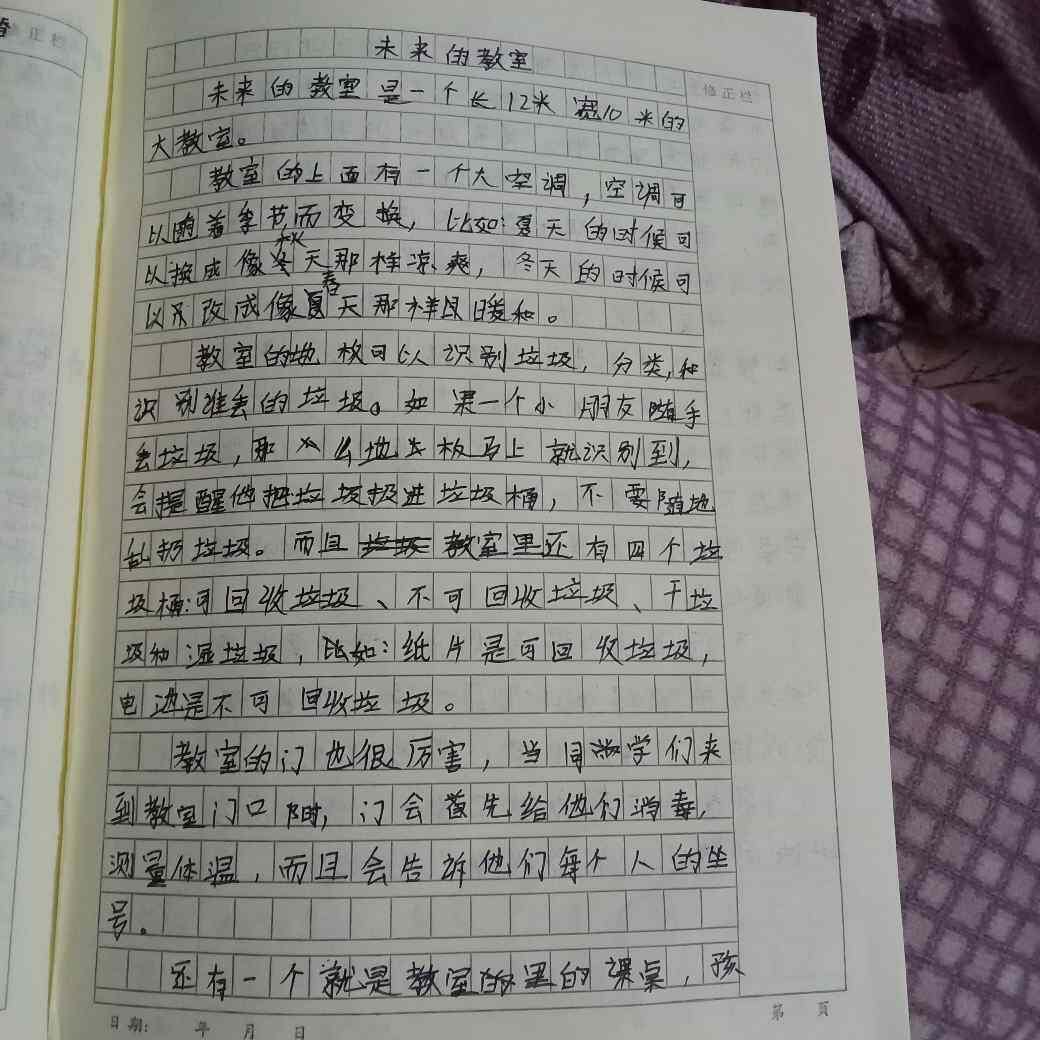 修正栏
未来的教室
修正栏
未来的教室是一个长12米宽10米的
大教室。
教室的上面有一个大空调，空调可
以随着季节而变换，比如：夏天的时候可
以换成像秋天那样凉爽，冬天的时候可
以改成像春天那样暖和。
教室的地板可以识别垃圾，分类，和
识别谁丢的垃圾。如果一个小朋友随手
丢垃圾，那么地板马上就识别到，
会提醒他把垃圾扔进垃圾桶，不要随地
乱扔垃圾。而且教室里还有四个垃
圾桶：可回收垃圾、不可回收垃圾、干垃
圾和湿垃圾，比如：纸片是可回收垃圾，
电池是不可回收垃圾。
教室的门也很厉害，当同学们来
到教室门口时，门会首先给他们消毒，
测量体温，而且会告诉他们每个人的坐
号。
还有一个就是教室里的课桌，孩
日期： 年 月 日
第 页